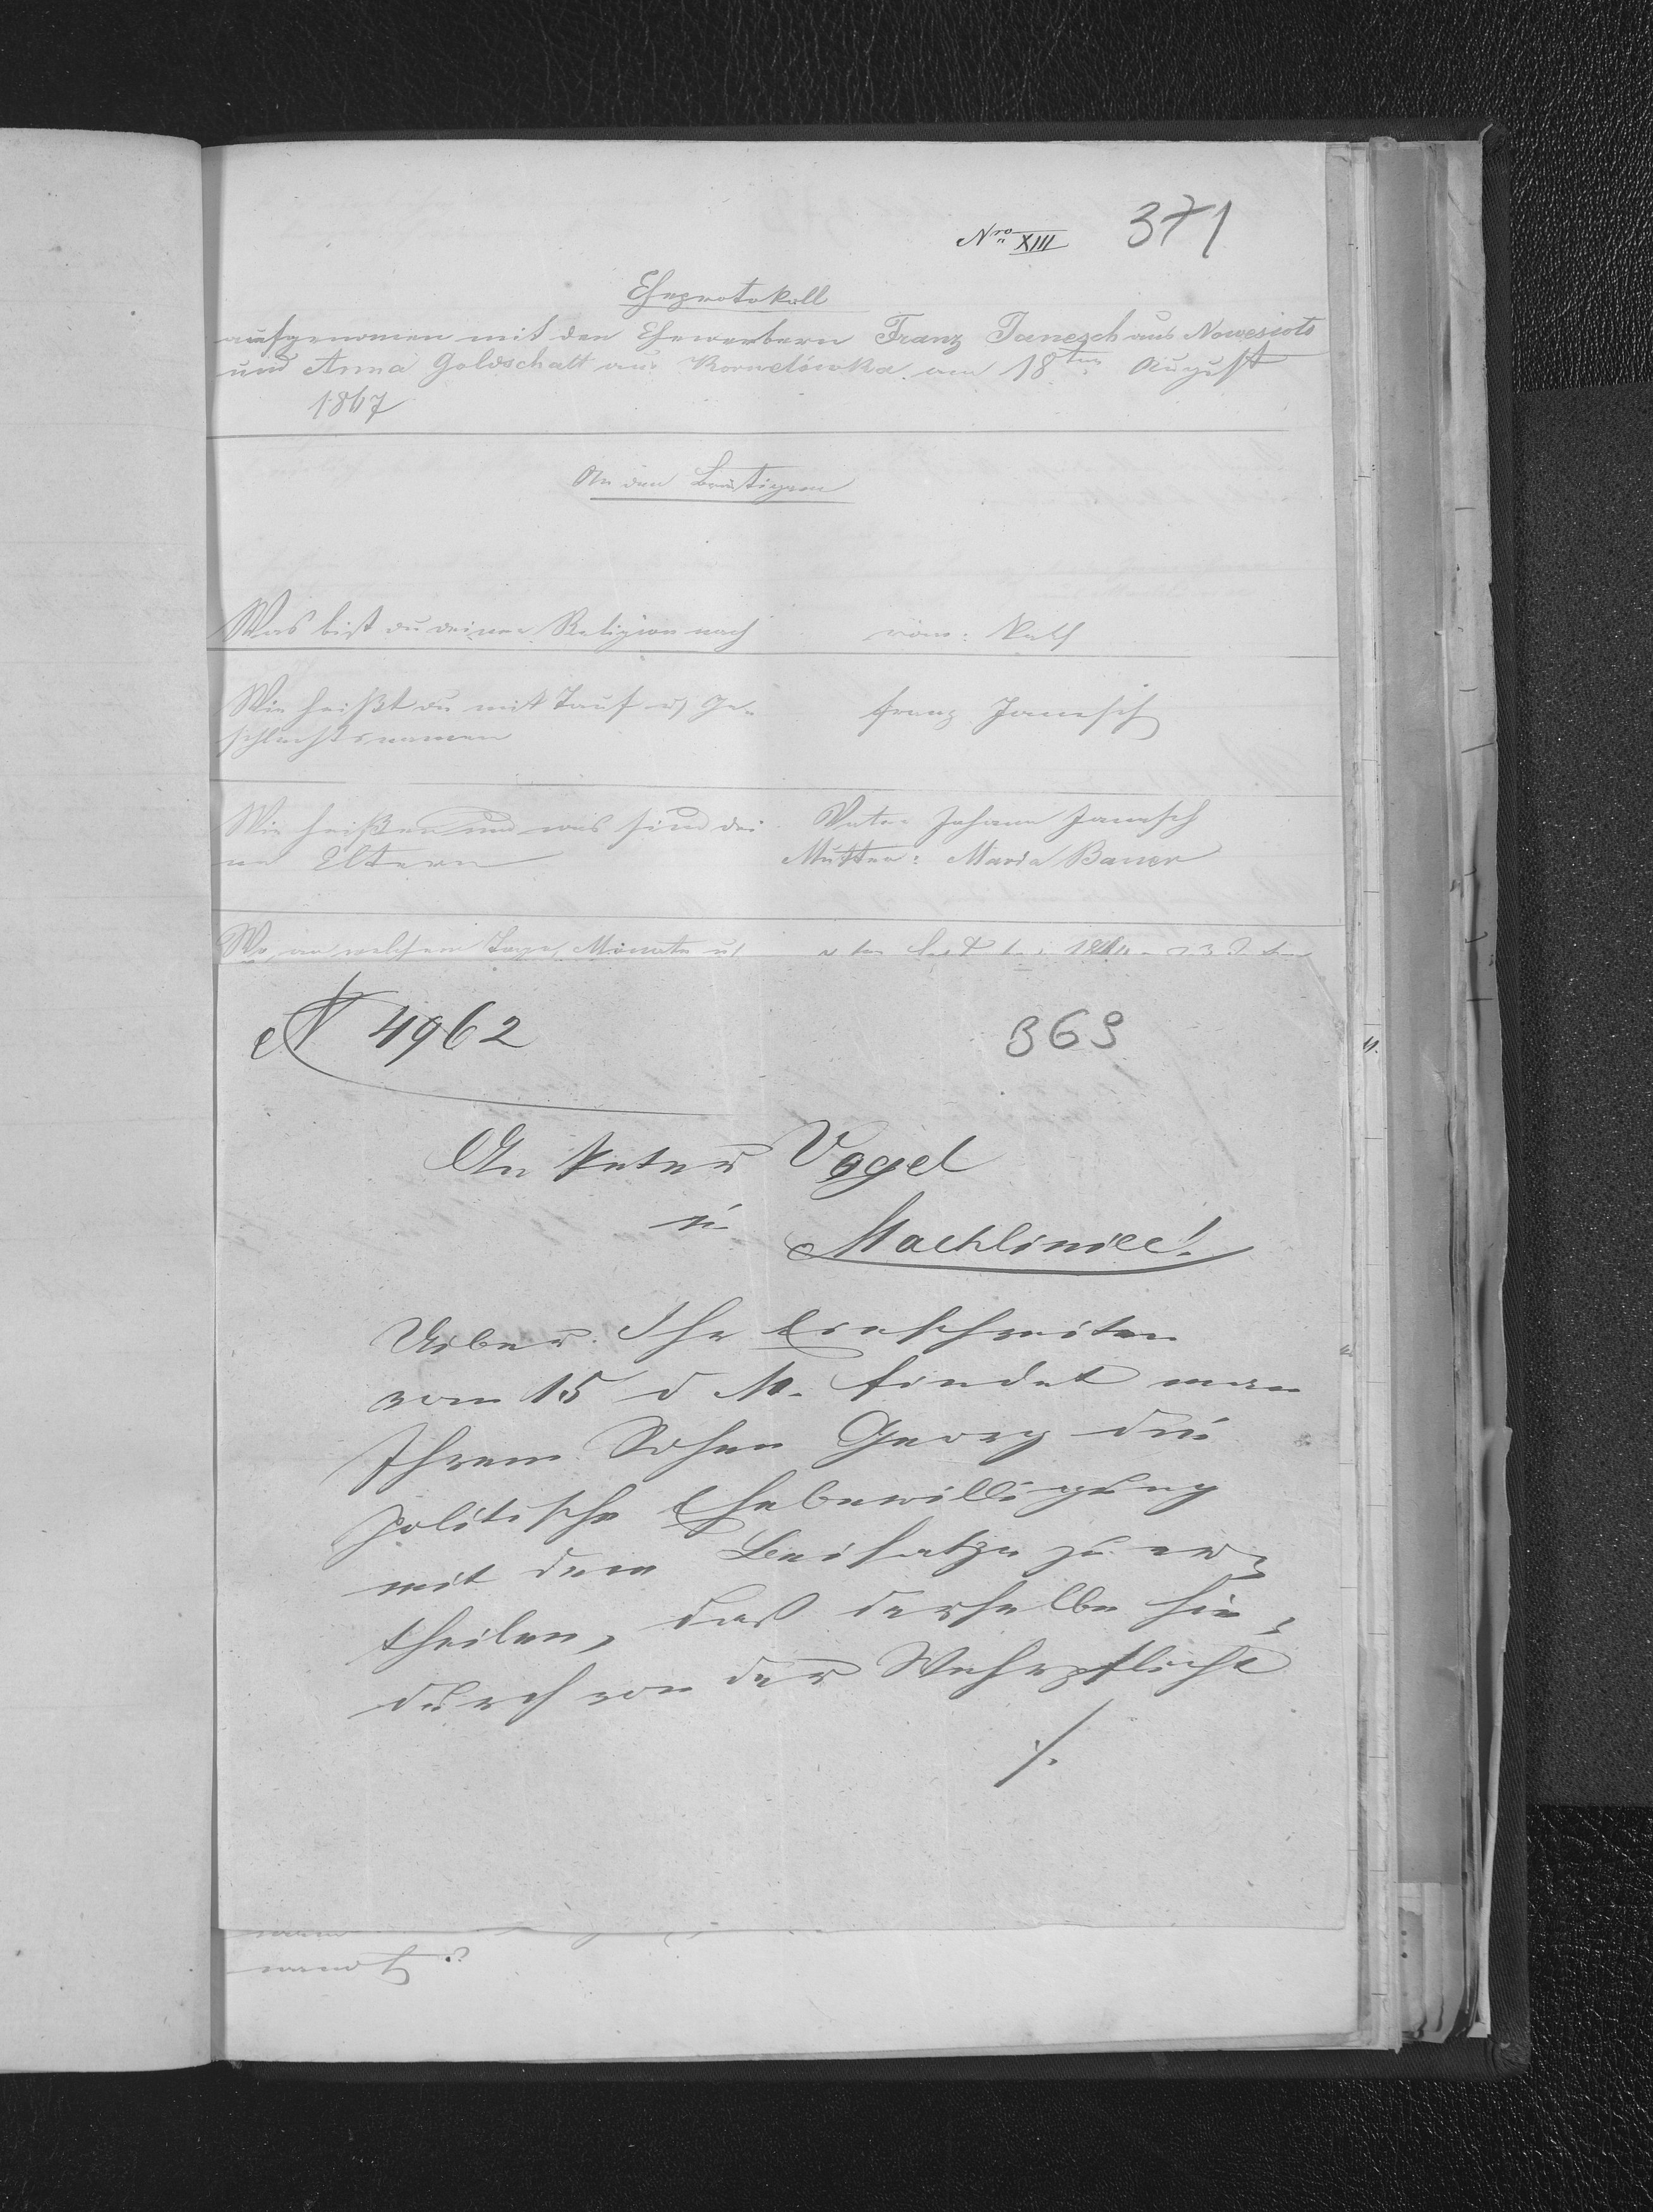 Nro XIII 371
Eheprotokoll
aufgenomen mit den Ehewerbern Franz Janesch aus Nowesioło
und Anna Goldschalt aus Kornelówka am 18ten August
1867
An den Bräutigam
Was bist du deiner Religion nach
röm: kath
Wie heißt du mit Tauf u Ge-
schlechtsnamen
Franz Janesch
Wie heißen und was sind dei
ne Eltern
Vater Johann Janesch
Mutter: Maria Bauer
Wo, an welchem Tage, Monate u
N 4962
369
An Peter Vogel
in
Machliniec!
Ueber Ihr Einschreiten
vom 15 d M. findet man
Ihrem Sohne Georg die
politische Ehebewilligung
mit dem Beisatze zu er-
theilen, daß derselbe hie-
durch von der Wehrpflicht
./.